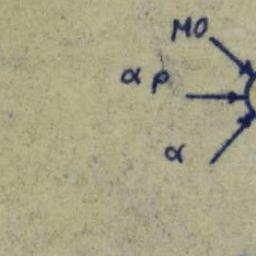 MO
α ρ
α